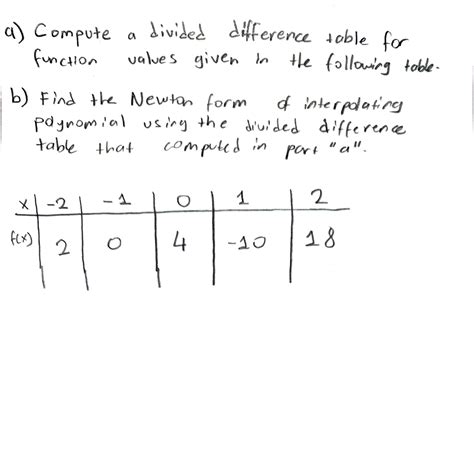 a) Compute a divided difference table for
function values given in the following table.
b) Find the Newton form of interpolating
polynomial using the divided difference
table that computed in part "a".
x -2 -1 0 1 2
f(x) 2 0 4 -10 18